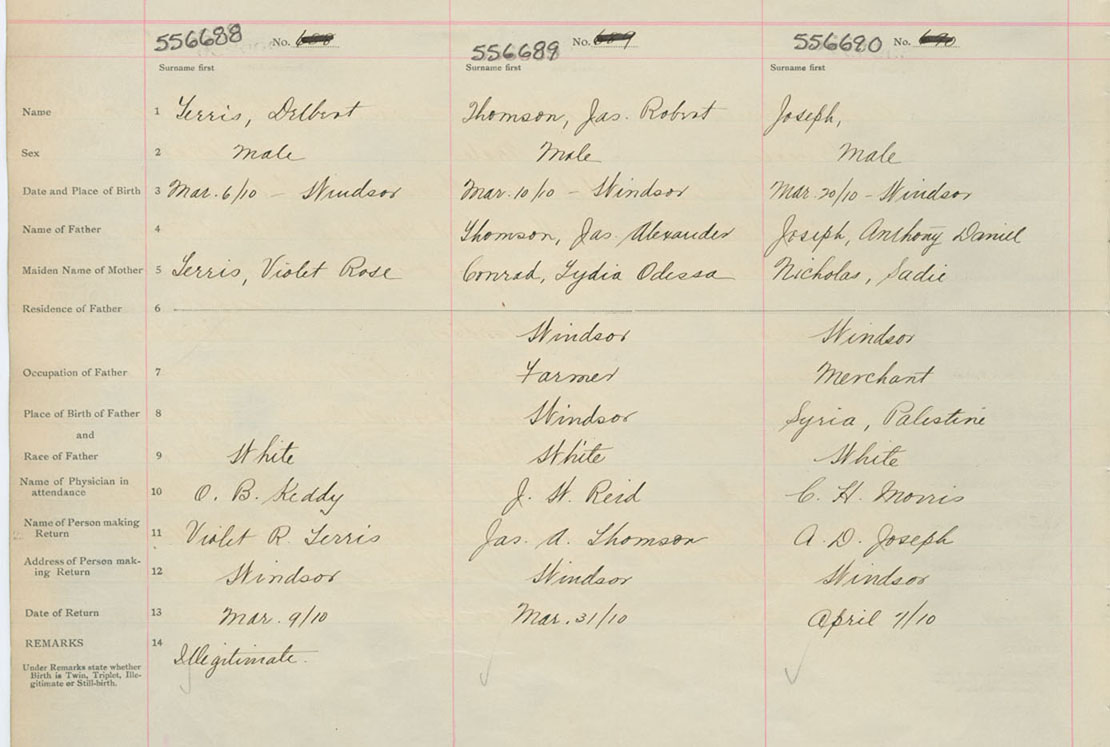 556688 No. 688 556689 No. 689 556690 No. 690
Surname first Surname first Surname first
Name 1 Ferris, Delbert Thomson, Jas. Robert Joseph,
Sex 2 Male Male Male
Date and Place of Birth 3 Mar. 6/10 - Windsor Mar. 10/10 - Windsor Mar. 20/10 - Windsor
Name of Father 4 Thomson, Jas. Alexander Joseph, Anthony Daniel
Maiden Name of Mother 5 Ferris, Violet Rose Conrad, Lydia Odessa Nicholas, Sadie
Residence of Father 6
Windsor Windsor
Occupation of Father 7 Farmer Merchant
Place of Birth of Father 8 Windsor Syria, Palestine
and
Race of Father 9 White White White
Name of Physician in
attendance 10 O. B. Keddy J. W. Reid C. H. Morris
Name of Person making
Return 11 Violet R. Ferris Jas. A. Thomson A. D. Joseph
Address of Person mak-
ing Return 12 Windsor Windsor Windsor
Date of Return 13 Mar. 9/10 Mar. 31/10 April 7/10
REMARKS 14 Illegitimate.
Under Remarks state whether
Birth is Twin, Triplet, Ille-
gitimate or Still-birth.